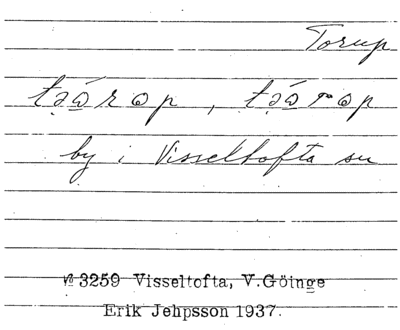 Torup
tə́ərɔp, tə́ərɔp
by i Visseltofta sn
№ 3259 Visseltofta, V.Göinge
Erik Jehpsson 1937.